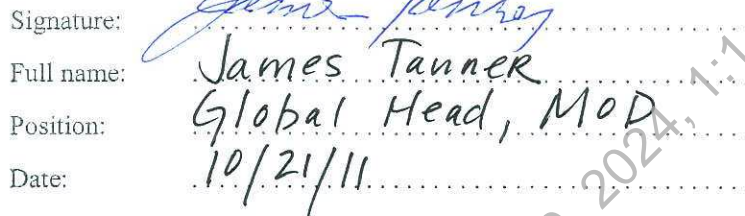 Signature:
Full name: James Tanner
Position: Global Head, MOD
Date: 10/21/11
2024, 1:1